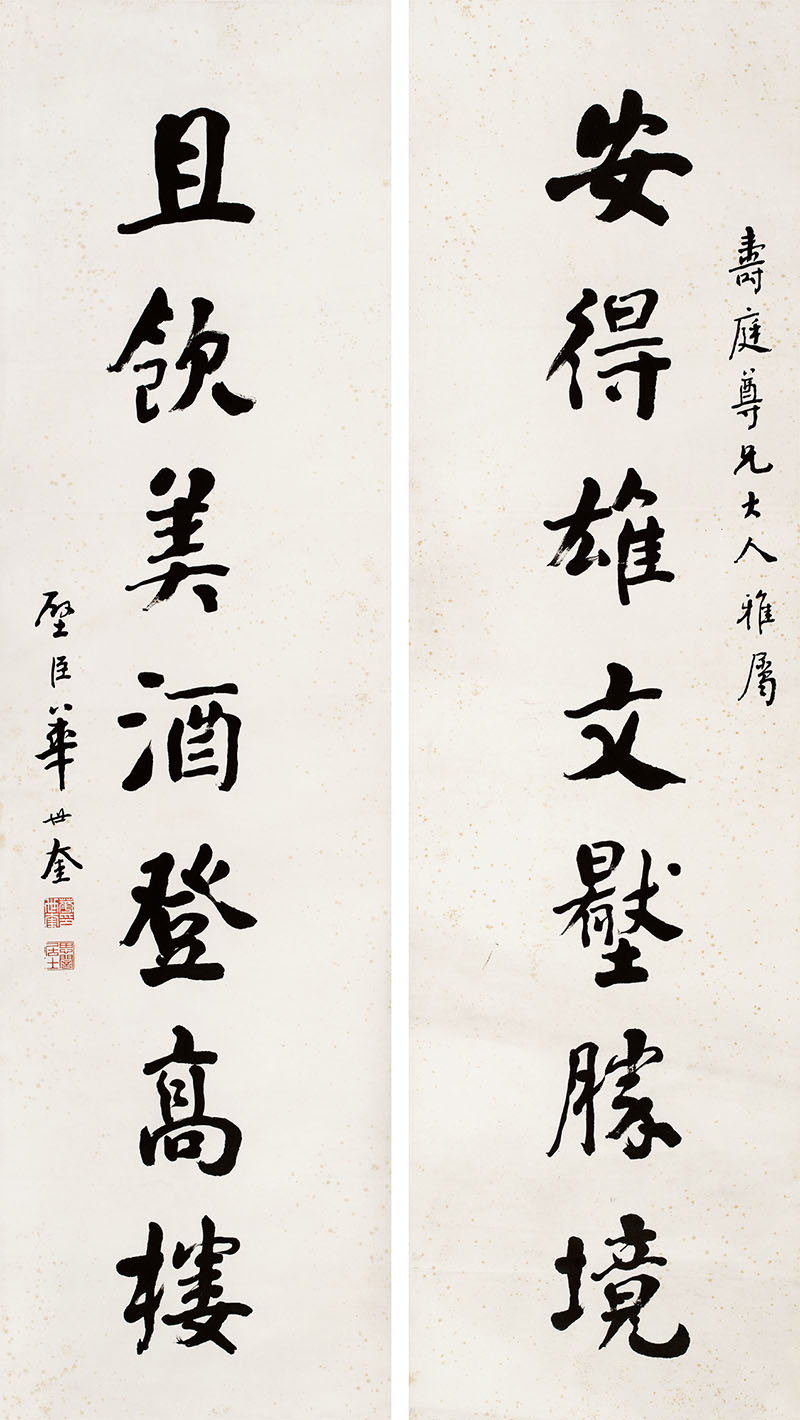 壽庭尊兄大人雅屬
安得雄文壓勝境
且飲美酒登高樓
璧臣華世奎